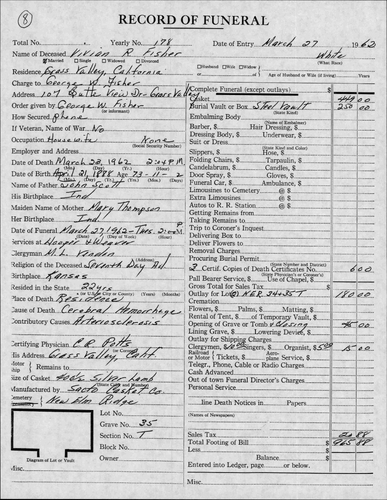 8
RECORD OF FUNERAL
Total No. Yearly No. 178 Date of Entry March 27 1962
Name of Deceased Vivian R Fisher White
(What Race)
Married Single Widowed Divorced Husband Wife Widow of
Residence Grass Valley, California Age of Husband or Wife (if living) Years
Charge to George W Fisher
Address 107 Butte View Dr. Grass Valley
Order given by George W Fisher
How Secured Phone
If Veteran, Name of War No
Occupation Housewife None
(Social Security Number)
Employer and Address
Date of Death March 22, 1962 2:48 P.M.
Date of Birth April 21, 1888 Age 73-11-2
Name of Father John Scott
His Birthplace Ind
Maiden Name of Mother Mary Thompson
Her Birthplace Ind
Date of Funeral March 27, 1962 - Tues. 2:00 P M.
Services at Hooper & Weaver
(Address)
Clergyman M.L. Venden
Religion of the Deceased Seventh Day Ad
Birthplace Kansas
Resided in the State 22 yrs
Place of Death Residence
Cause of Death Cerebral Hemorrhage
Contributory Causes Arteriosclerosis
Certifying Physician C.R. Potts
His Address Grass Valley, Calif
Size of Casket Silver Lamb
Manufactured by Sacto Casket Co.
Cemetery New Elm Ridge
Lot No.
Grave No. 35
Section No. T
Block No.
Owner
Diagram of Lot or Vault
Misc.
Complete Funeral (except outlays)
Casket 449 00
Burial Vault or Box Steel Vault 250 00
(State Kind)
Embalming Body
(Name of Embalmer)
Barber, $ Hair Dressing, $
Dressing Body, $ Underwear, $
Suit or Dress
(State Kind and Color)
Slippers, $ Hose, $
Folding Chairs, $ Tarpaulin, $
Candelabrum, $ Candles, $
Door Spray, $ Gloves, $
Funeral Car, $ Ambulance, $
Limousines to Cemetery @ $
Extra Limousines @ $
Autos to R. R. Station @ $
Getting Remains from
Taking Remains to
Trip to Coroner's Inquest
Delivering Box to
Deliver Flowers to
Removal Charges
Procuring Burial Permit
(State Number and District)
2 Certified Copies of Death Certificates No. 6 00
(State Physician's or Coroner's)
Pall Bearer Service Use of Chapel, $
Gross Total for Sales Tax
Outlay for Lot 180 00
(State Name of Cemetery)
Flowers, $ Palms, $ Matting, $
Rental of Tent, $ of Temporary Vault, $
Opening of Grave or Tomb & closing
Lining Grave, $ Lowering Device, $
Outlay for Shipping Charges
Clergymen, Singers, $ Organist, $5.00
Railroad or Motor Tickets, $ Aeroplane Service, $
Telegr., Phone, Cable or Radio Charges
Cash Advanced
Out of town Funeral Director's Charges
Personal Service
line Death Notices in Papers
(Names of Newspapers)
Sales Tax
Total Footing of Bill
Less
Balance
Entered into Ledger, page or below.
Misc.